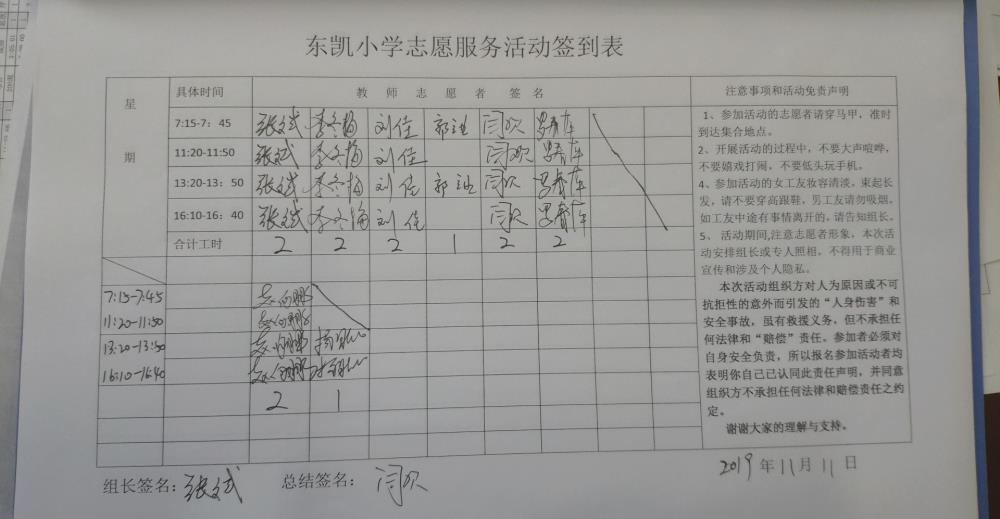 东凯小学志愿服务活动签到表
星期
具体时间 教师志愿者签名
7:15-7:45 张斌 李冬梅 刘佳 郭迪 闫欢
11:20-11:50 张斌 李冬梅 刘佳 闫欢
13:20-13:50 张斌 李冬梅 刘佳 郭迪 闫欢
16:10-16:40 张斌 李冬梅 刘佳 闫欢
合计工时 2 2 2 1 2 2
7:15-7:45
11:20-11:50
13:20-13:50
16:10-16:40
2 1
注意事项和活动免责声明
1、参加活动的志愿者请穿马甲，准时
到达集合地点。
2、开展活动的过程中，不要大声喧哗，
不要嬉戏打闹，不要低头玩手机。
4、参加活动的女工友妆容清淡，束起长
发，请不要穿高跟鞋，男工友请勿吸烟。
如工友中途有事情离开的，请告知组长。
5、活动期间,注意志愿者形象，本次活
动安排组长或专人照相，不得用于商业
宣传和涉及个人隐私。
本次活动组织方对人为原因或不可
抗拒性的意外而引发的“人身伤害”和
安全事故，虽有救援义务，但不承担任
何法律和“赔偿”责任。参加者必须对
自身安全负责，所以报名参加活动者均
表明你自己已认同此责任声明，并同意
组织方不承担任何法律和赔偿责任之约
定。
谢谢大家的理解与支持。
组长签名：张斌 总结签名：闫欢
2019年11月11日